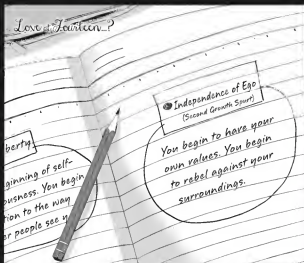 Love at Fourteen
berty
ginning of self-
ousness. You begin
tion to the way
er people see
Independence of Ego
(Second Growth Spurt)
You begin to have your
own values. You begin
to rebel against your
surroundings.